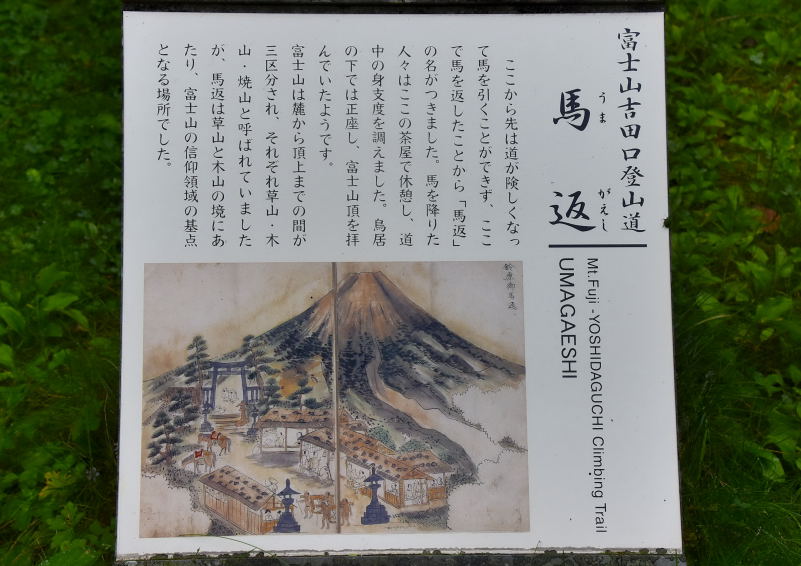 富士山吉田口登山道
馬返
うま
がえし
Mt.Fuji -YOSHIDAGUCHI Climbing Trail
UMAGAESHI
ここから先は道が険しくなっ
て馬を引くことができず、ここ
で馬を返したことから「馬返」
の名がつきました。馬を降りた
人々はここの茶屋で休憩し、道
中の身支度を調えました。鳥居
の下では正座し、富士山頂を拝
んでいたようです。
富士山は麓から頂上までの間が
三区分され、それぞれ草山・木
山・焼山と呼ばれていました
が、馬返は草山と木山の境にあ
たり、富士山の信仰領域の基点
となる場所でした。